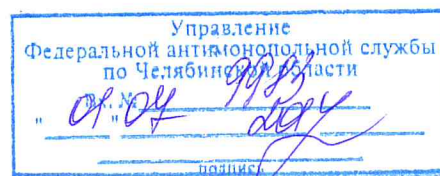 Управление
Федеральной антимонопольной службы
по Челябинской области
Вх. № 9983
" 01 " 07
подпись